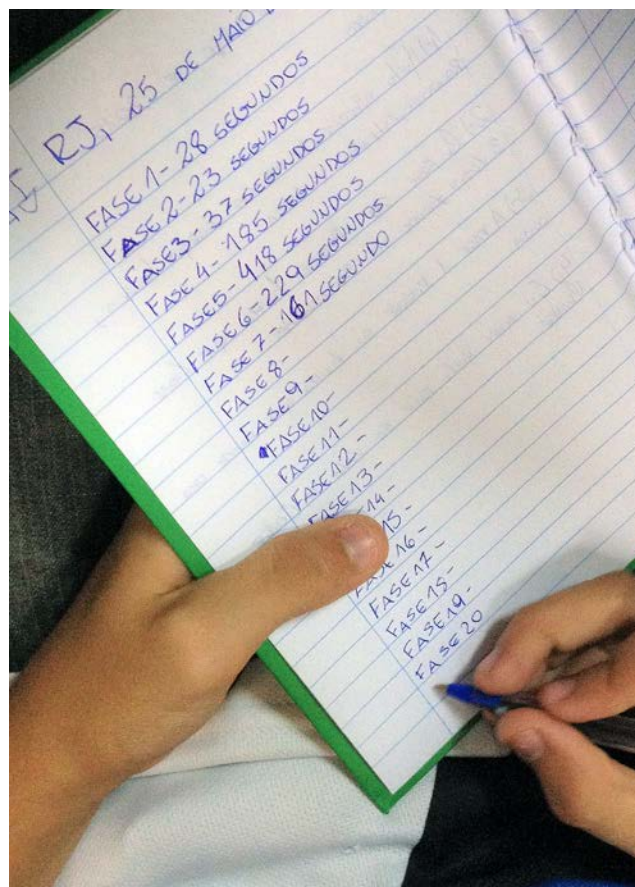 RJ, 25 DE MAIO
FASE 1- 28 SEGUNDOS
FASE 2- 23 SEGUNDOS
FASE3- 37 SEGUNDOS
FASE 4- 185 SEGUNDOS
FASE5- 418 SEGUNDOS
FASE 6- 229 SEGUNDOS
FASE 7- 161 SEGUNDO
FASE 8-
FASE9-
FASE10-
FASE11-
FASE12-
FASE13-
14-
15-
FASE 16-
FASE17-
FASE 18-
FASE19-
FASE 20